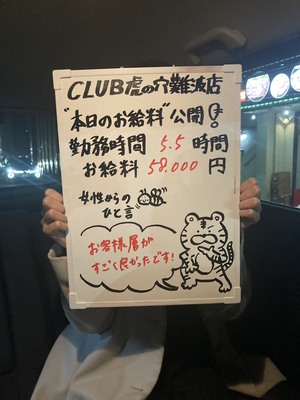 CLUB虎の穴難波店
"本日のお給料"公開
勤務時間 5.5時間
お給料 58.000円
女性からの
ひと言
お客様層が
すごく良かったです!